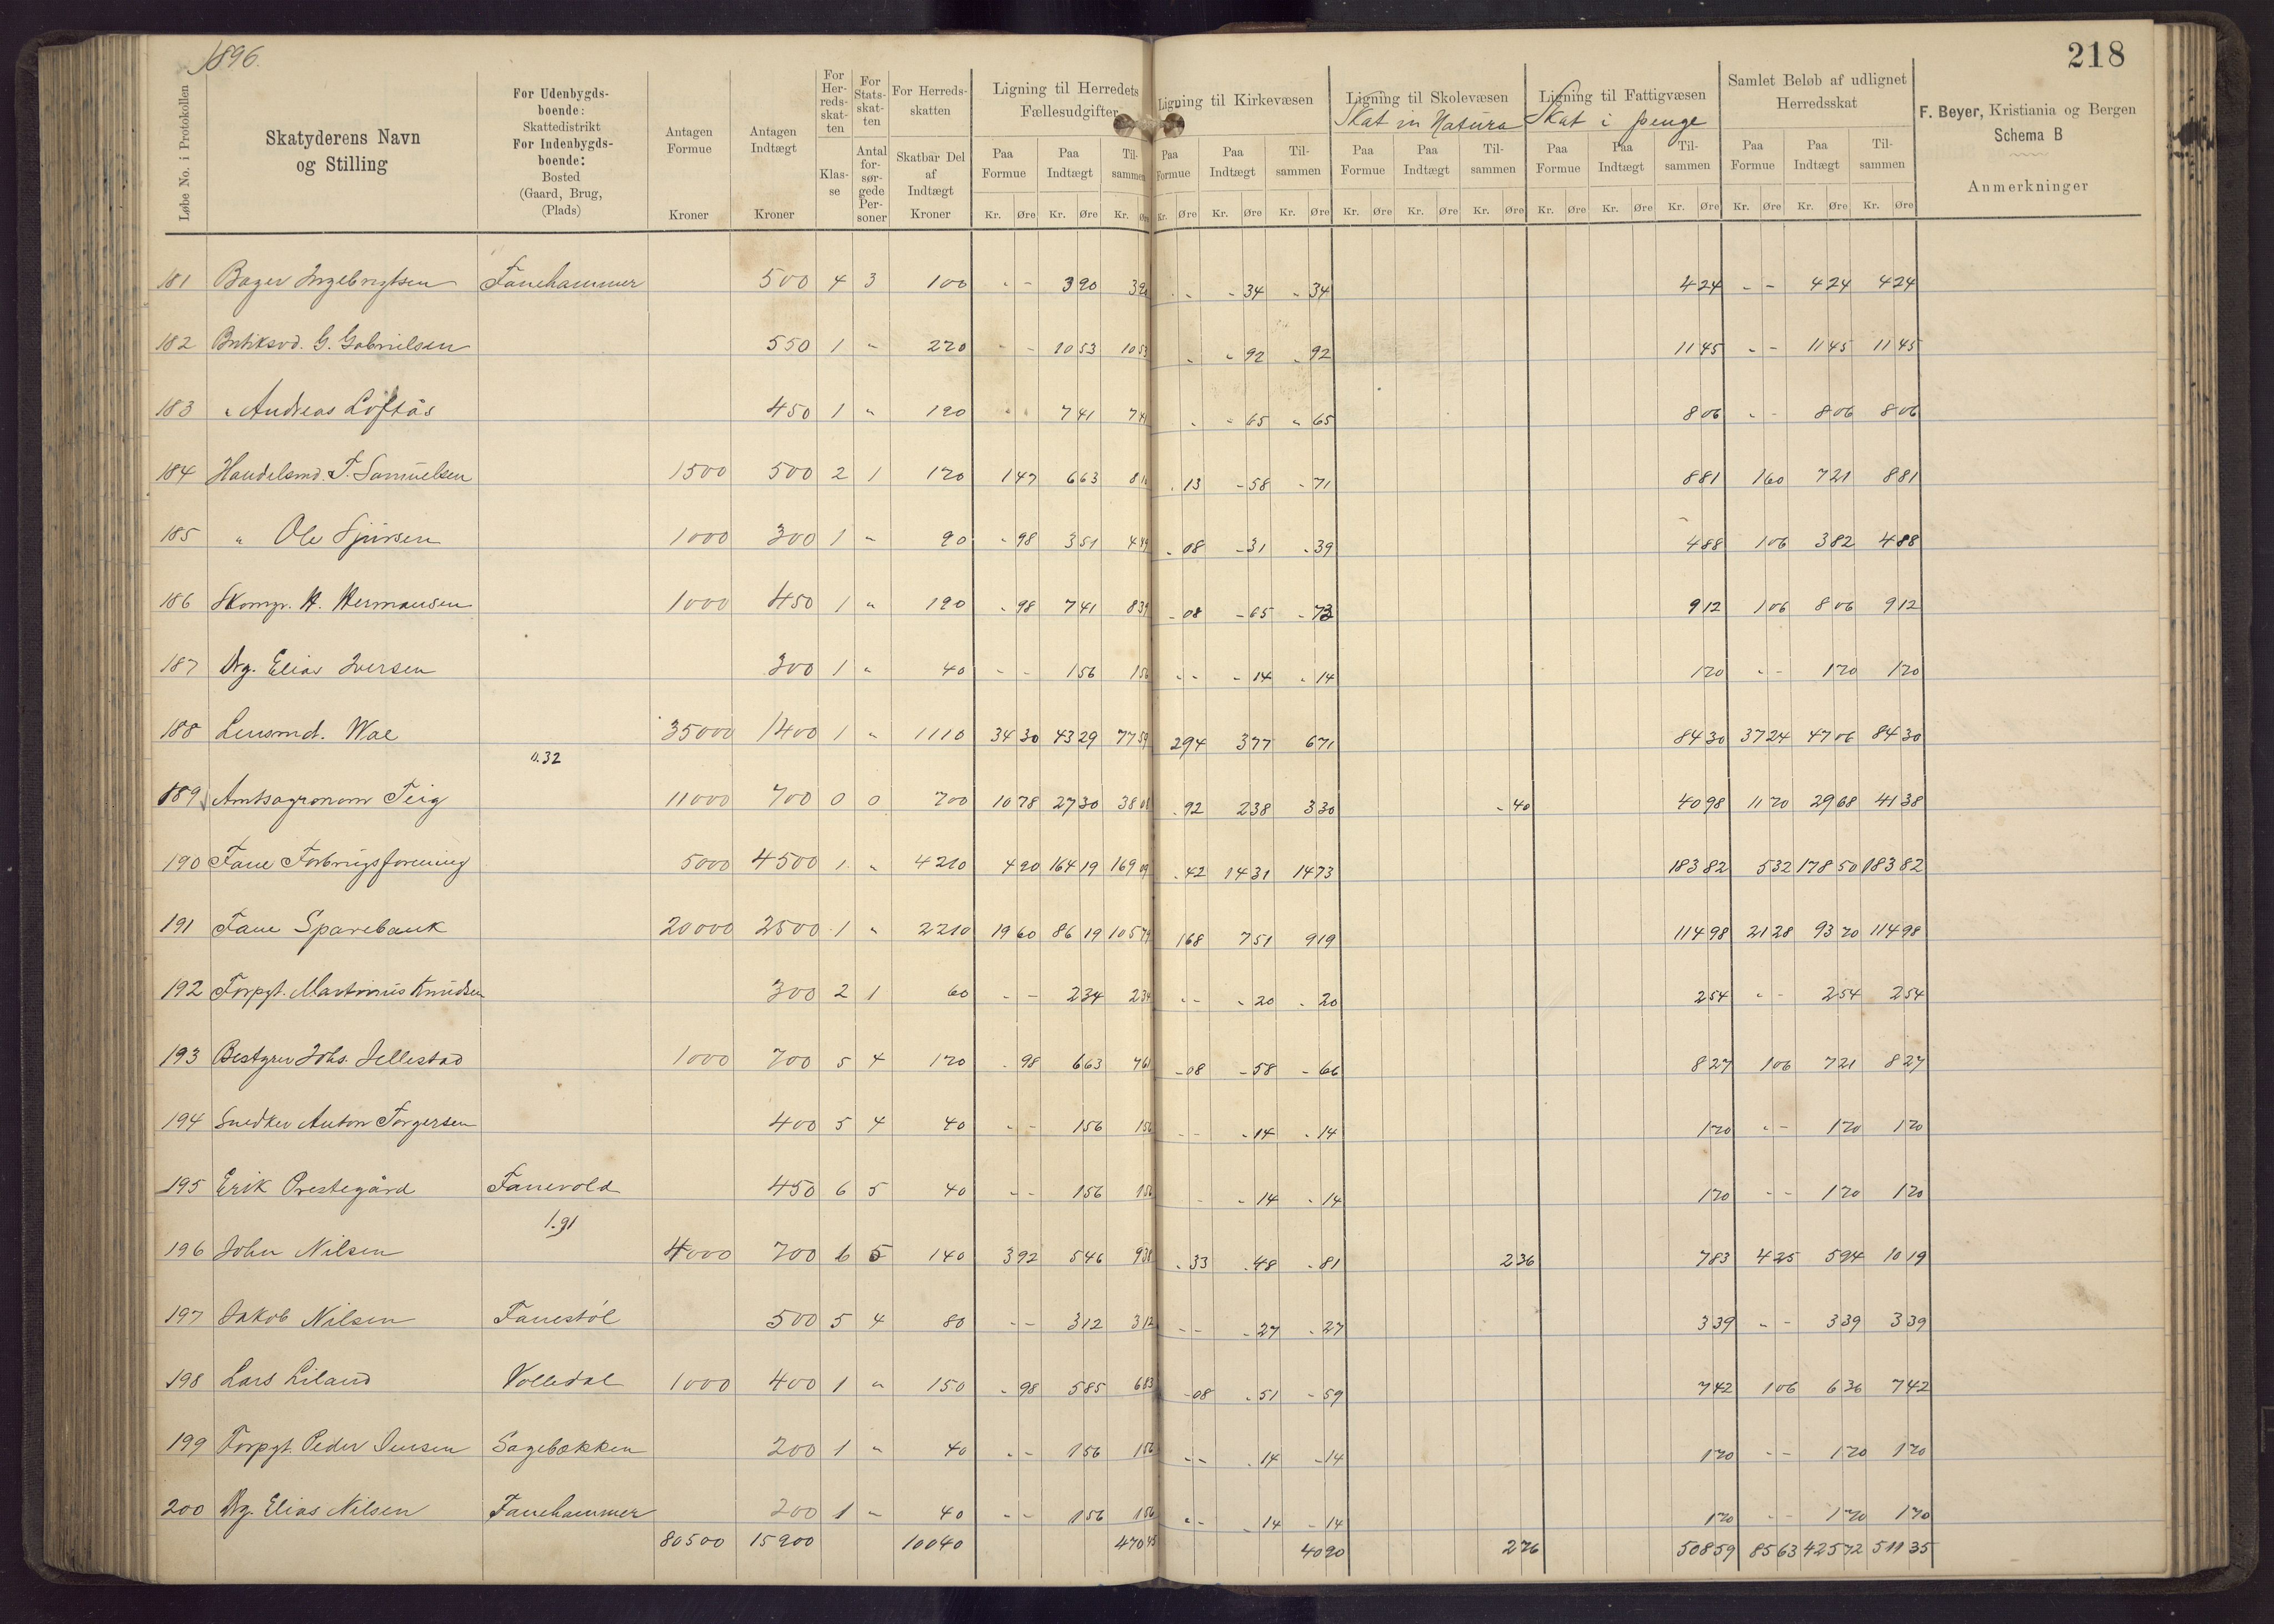 1896.
218
Løbe No. i Protokollen
Skatyderens Navn og Stilling
For Udenbygdsboende: Skattedistrikt For Indenbygdsboende: Bosted (Gaard, Brug, (Plads)
Antagen Formue Kroner
Antagen Indtægt Kroner
For Herredsskatten Klasse
For Statsskatten Antal forsørgede Personer
For Herredsskatten Skatbar Del af Indtægt Kroner
Ligning til Herredets Fællesudgifter
Ligning til Kirkevæsen
Ligning til Skolevæsen
Skat in Natura
Ligning til Fattigvæsen
Skat i penge
Samlet Beløb af udlignet Herredsskat
Paa Formue Paa Indtægt Tilsammen Paa Formue Paa Indtægt Tilsammen Paa Formue Paa Indtægt Tilsammen Paa Formue Paa Indtægt Tilsammen Paa Formue Paa Indtægt Tilsammen
Kr. Øre Kr. Øre Kr. Øre Kr. Øre Kr. Øre Kr. Øre Kr. Øre Kr. Øre Kr. Øre Kr. Øre Kr. Øre Kr. Øre Kr. Øre Kr. Øre Kr. Øre
F. Beyer, Kristiania og Bergen
Schema B
Anmerkninger
181 Bager Ingebrigtsen Fanehammer 500 4 3 100 - - 3 90 3 90 - - - 34 - 34 4 24 - - 4 24 4 24
182 G. Gabrielsen 550 1 " 270 - - 10 53 10 53 - - 92 - 92 11 45 - - 11 45 11 45
183 " Andreas Loftås 450 1 " 190 - - 7 41 7 41 - - 65 - 65 8 06 - - 8 06 8 06
184 Handelsmd. T. Samuelsen 1500 500 2 1 170 1 47 6 63 8 10 - 13 - 58 - 71 8 81 1 60 7 21 8 81
185 " Ole Sjursen 1000 300 1 " 90 - 98 3 51 4 49 - 08 - 31 - 39 4 88 1 06 3 82 4 88
186 Skomgr. H. Hermansen 1000 450 1 " 190 - 98 7 41 8 39 - 08 - 65 - 73 9 12 1 06 8 06 9 12
187 Elias Iversen 300 1 " 40 - - 1 56 1 56 - - - 14 - 14 1 70 - - 1 70 1 70
188 Lensmd. Wae 35000 1400 1 " 1110 34 30 43 29 77 59 2 94 3 77 6 71 84 30 37 24 47 06 84 30
0.32
189 Amtsagronom Teig 11000 700 0 0 700 10 78 27 30 38 08 - 92 2 38 3 30 - 40 40 98 11 70 29 68 41 38
190 Fane Forbrugsforening 5000 4500 1 " 4210 4 90 164 19 169 09 - 42 14 31 14 73 183 82 5 32 178 50 183 82
191 Fane Sparebank 20000 2500 1 " 2210 19 60 86 19 105 79 1 68 7 51 9 19 114 98 21 28 93 70 114 98
192 Forpgt. Martinus Knudsen 300 2 1 60 - - 2 34 2 34 - - - 20 - 20 2 54 - - 2 54 2 54
193 Bestyrer Johs. Jellestad 1000 700 5 4 170 - 98 6 63 7 61 - 08 - 58 - 66 8 27 1 06 7 21 8 27
194 Snedker Anton Torgersen 400 5 4 40 - - 1 56 1 56 - - - 14 - 14 1 70 - - 1 70 1 70
195 Erik Prestegård Fanevold 450 6 5 40 - - 1 56 1 56 - - - 14 - 14 1 70 - - 1 70 1 70
1.91
196 John Nilsen 4000 700 6 5 140 3 92 5 46 9 38 - 33 - 48 - 81 2 36 7 83 4 25 5 94 10 19
197 Jakob Nilsen Fanestøl 500 5 4 80 - - 3 12 3 12 - - - 27 - 27 3 39 - - 3 39 3 39
198 Lars Liland Volledal 1000 400 1 " 150 - 98 5 85 6 83 - 08 - 51 - 59 7 42 1 06 6 36 7 42
199 Forpgt. Peder Jensen Sagebækken 200 1 " 40 - - 1 56 1 56 - - - 14 - 14 1 70 - - 1 70 1 70
200 Elias Nilsen Fanehammer 200 1 - 40 - - 1 56 1 56 - - - 14 - 14 1 70 - - 1 70 1 70
80500 15900 10040 470 45 40 90 2 76 508 59 85 63 425 72 511 35